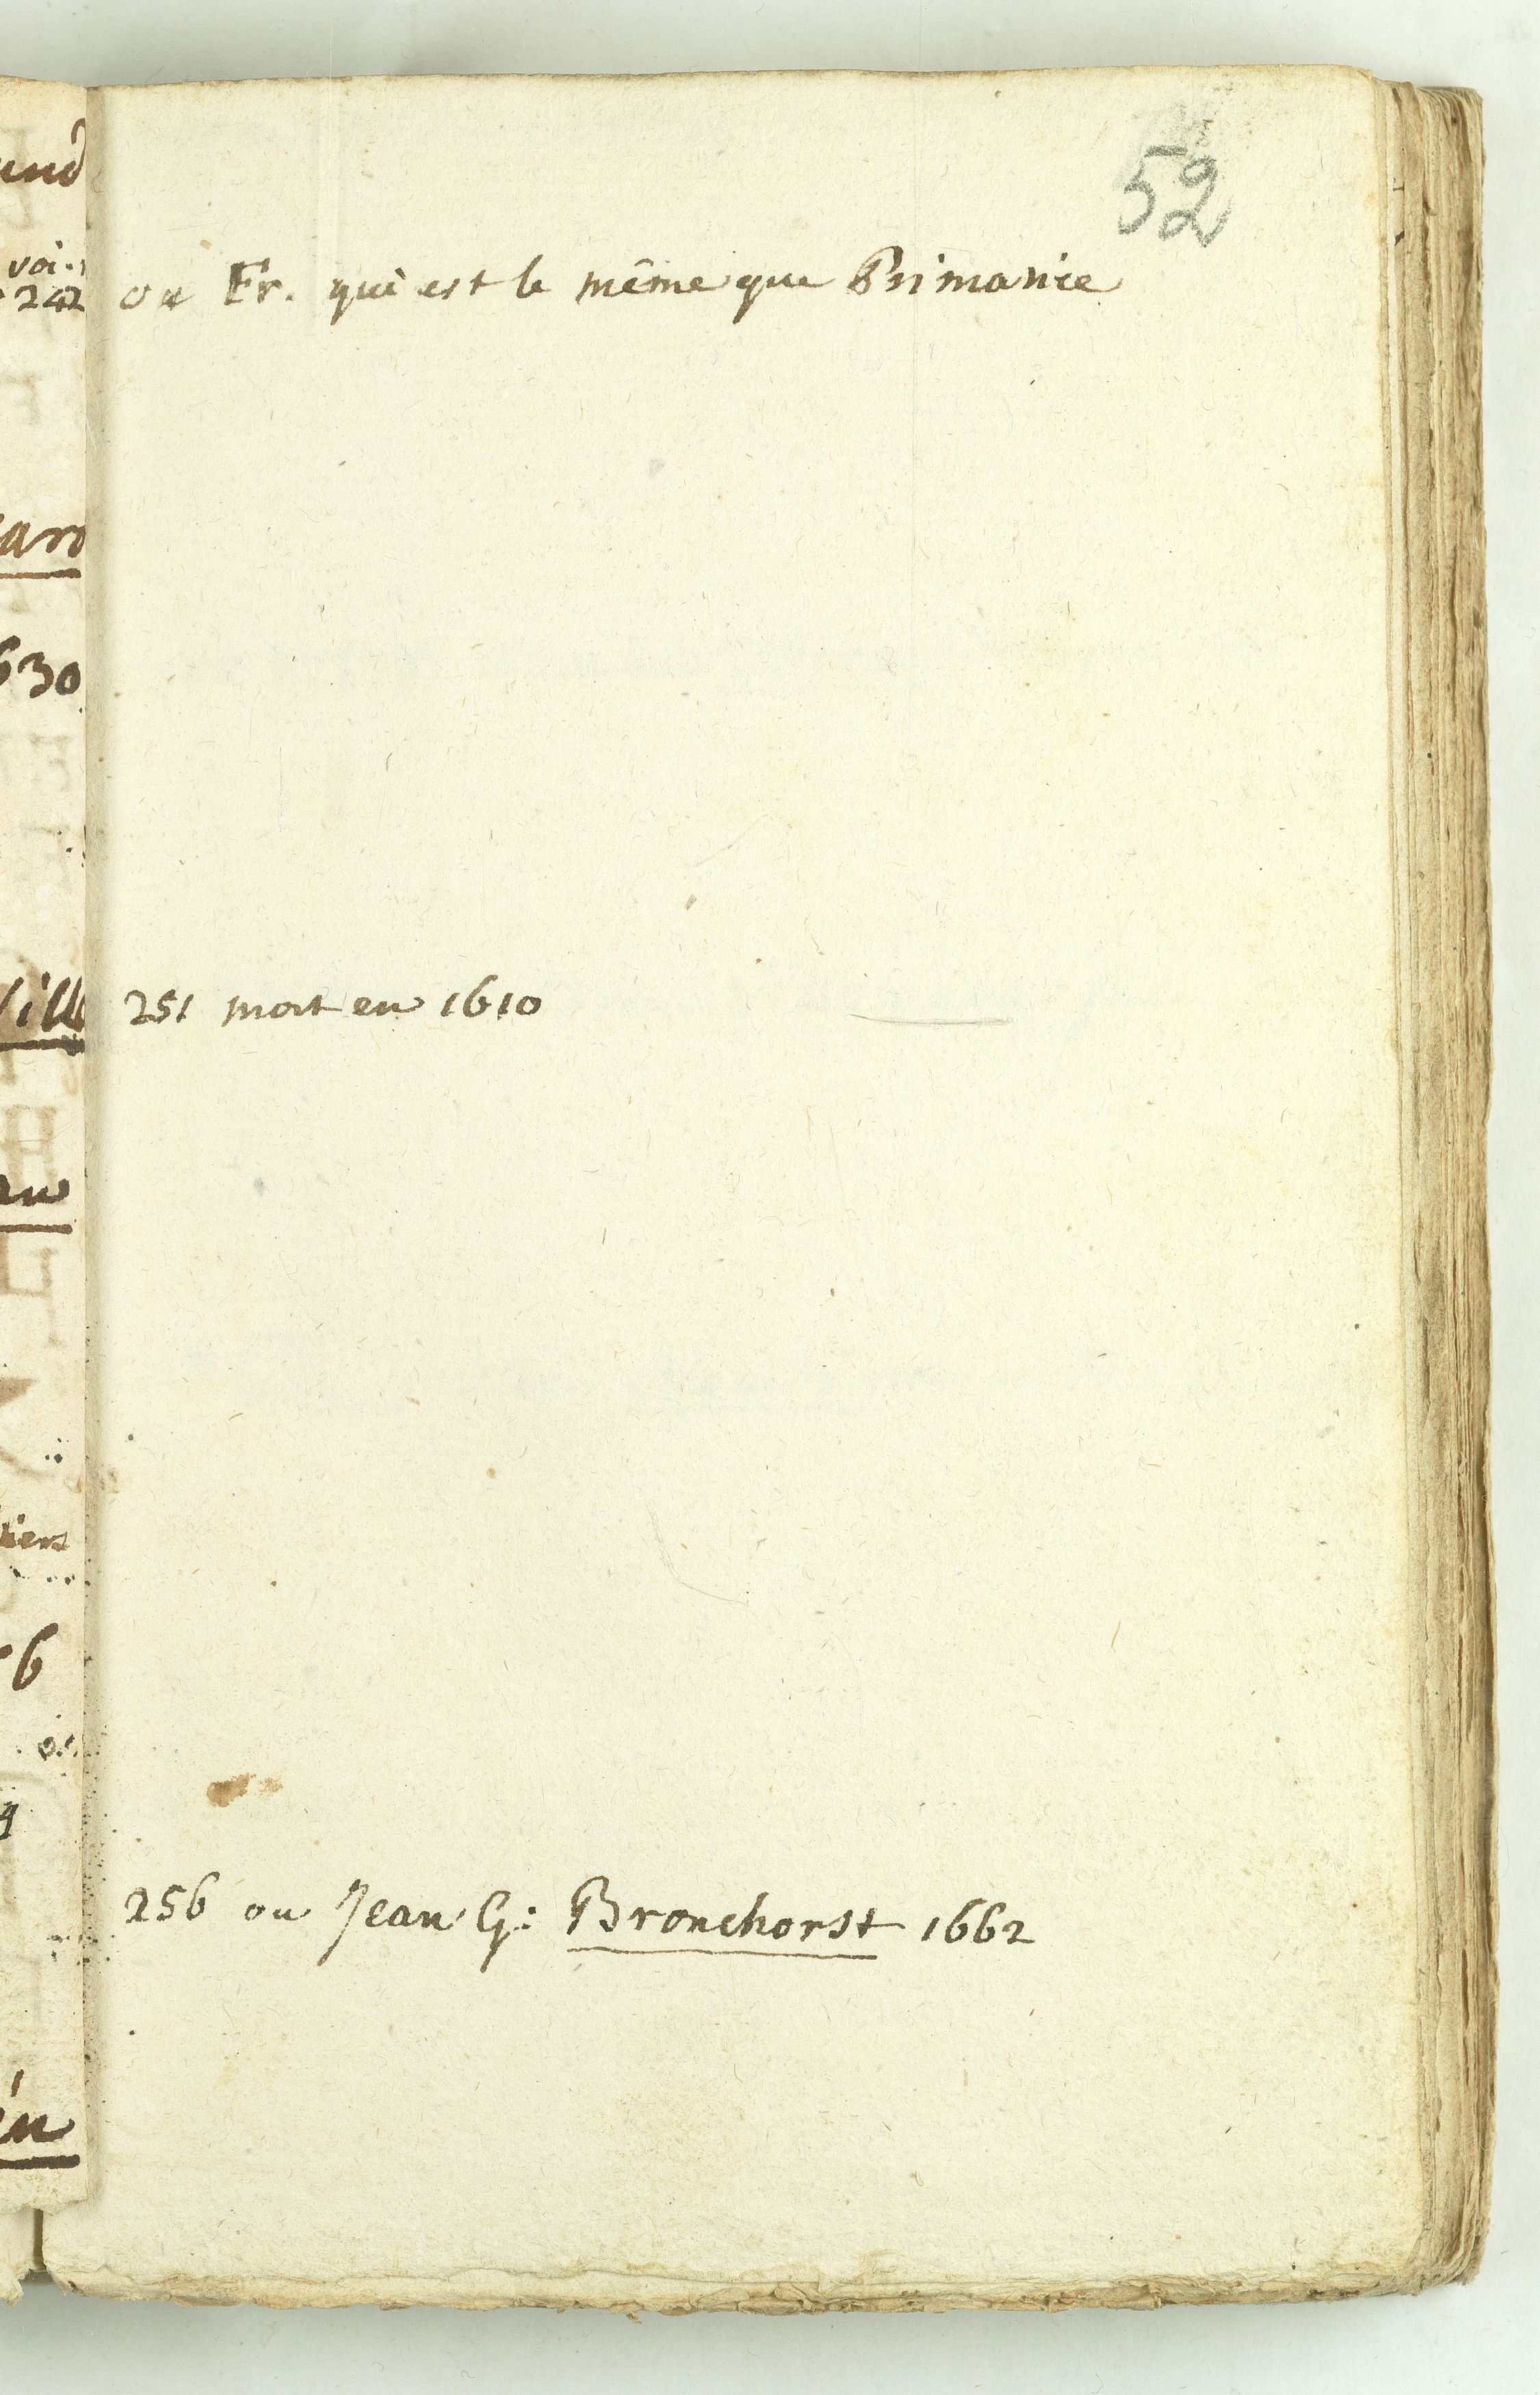 52
voi.
242
ou Fr. qui est le même que Primarice
630
251 mort en 1610
256 ou Jean G: Bronchorst 1662